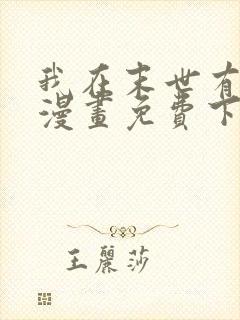 我在末世有
漫畫免費下
王麗莎